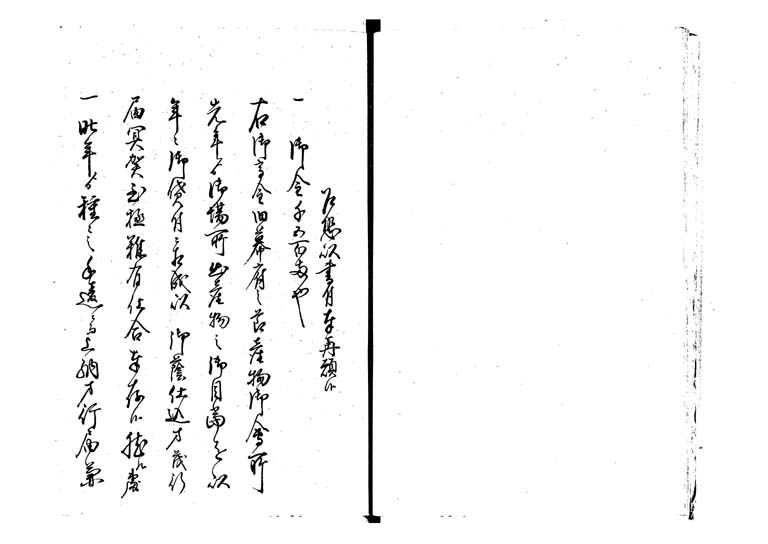 乍恐以書付奉再願候
一 御金千五百両也
右御高金旧幕府之節産物御会所
先年ゟ御場所出産物之御目当を以
年々御貸付被成以御蔭仕込方茂行
届冥賀至極難有仕合奉存候然処
一昨年ゟ種々手違ニ而上納方行届兼